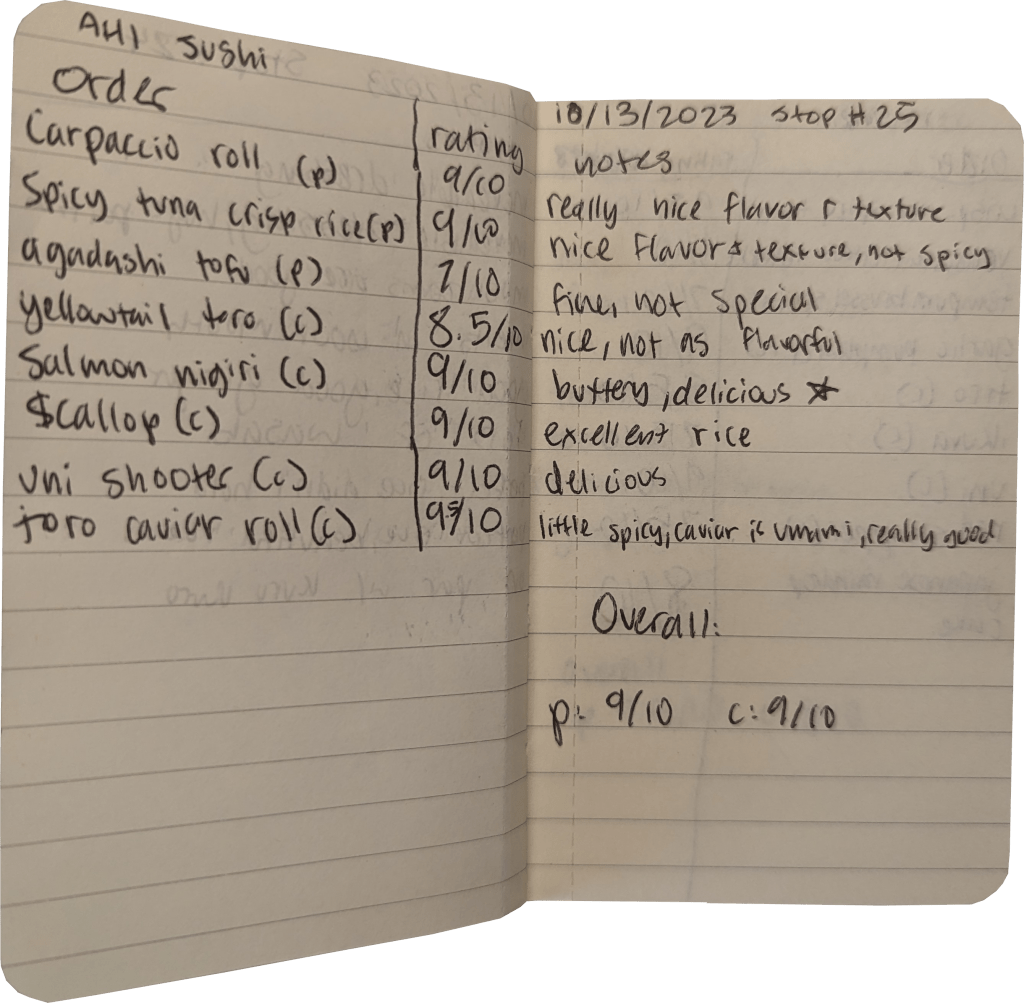 AHI Sushi
Order
rating
Carpaccio roll (p) 9/10
Spicy tuna crisp rice(p) 9/10
agadashi tofu (p) 7/10
yellowtail toro (c) 8.5/10
Salmon nigiri (c) 9/10
$callop (c) 9/10
uni shooter (c) 9/10
toro caviar roll (c) 95/10
10/13/2023 stop #25
notes
really nice flavor & texture
nice flavor & texture, not spicy
fine, not special
nice, not as flavorful
buttery, delicious ★
excellent rice
delicious
little spicy, caviar is umami, really good
Overall:
p: 9/10 c: 9/10